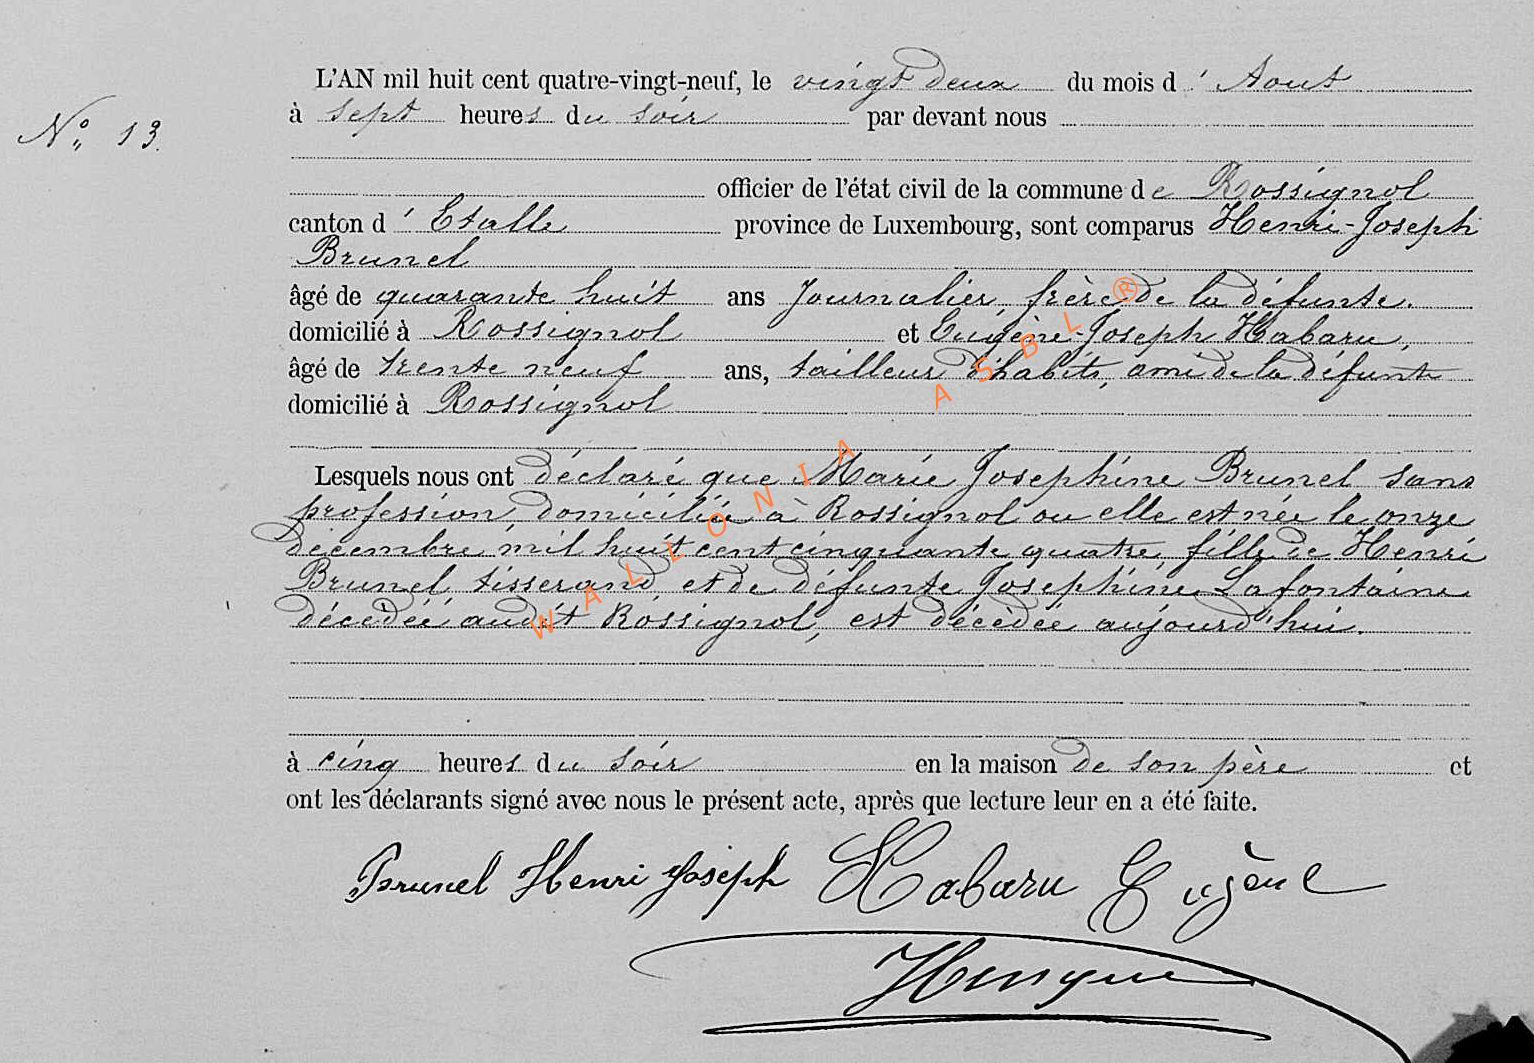 L'AN mil huit cent quatre-vingt-neuf, le vingt deux du mois d'Aout
N° 13.
à sept heures du soir par devant nous
officier de l'état civil de la commune de Rossignol
canton d'Etalle province de Luxembourg, sont comparus Henri-Joseph
Brunel
âgé de quarante huit ans Journalier, frère de la défunte.
domicilié à Rossignol et Eugène-Joseph Habaru,
âgé de trente neuf ans, tailleur d'habits, ami de la défunte
domicilié à Rossignol
Lesquels nous ont déclaré que Marie Josephine Brunel sans
profession, domiciliée à Rossignol ou elle est née le onze
décembre mil huit cent cinquante quatre, fille de Henri
Brunel tisserand et de défunte Joséphine Lafontaine
décédéé audit Rossignol, est décédée aujourd'hui.
à cinq heures du soir en la maison de son père et
ont les déclarants signé avec nous le présent acte, après que lecture leur en a été faite.
Brunel Henri Joseph Habaru Eugène
WALLONIA ASBL ®